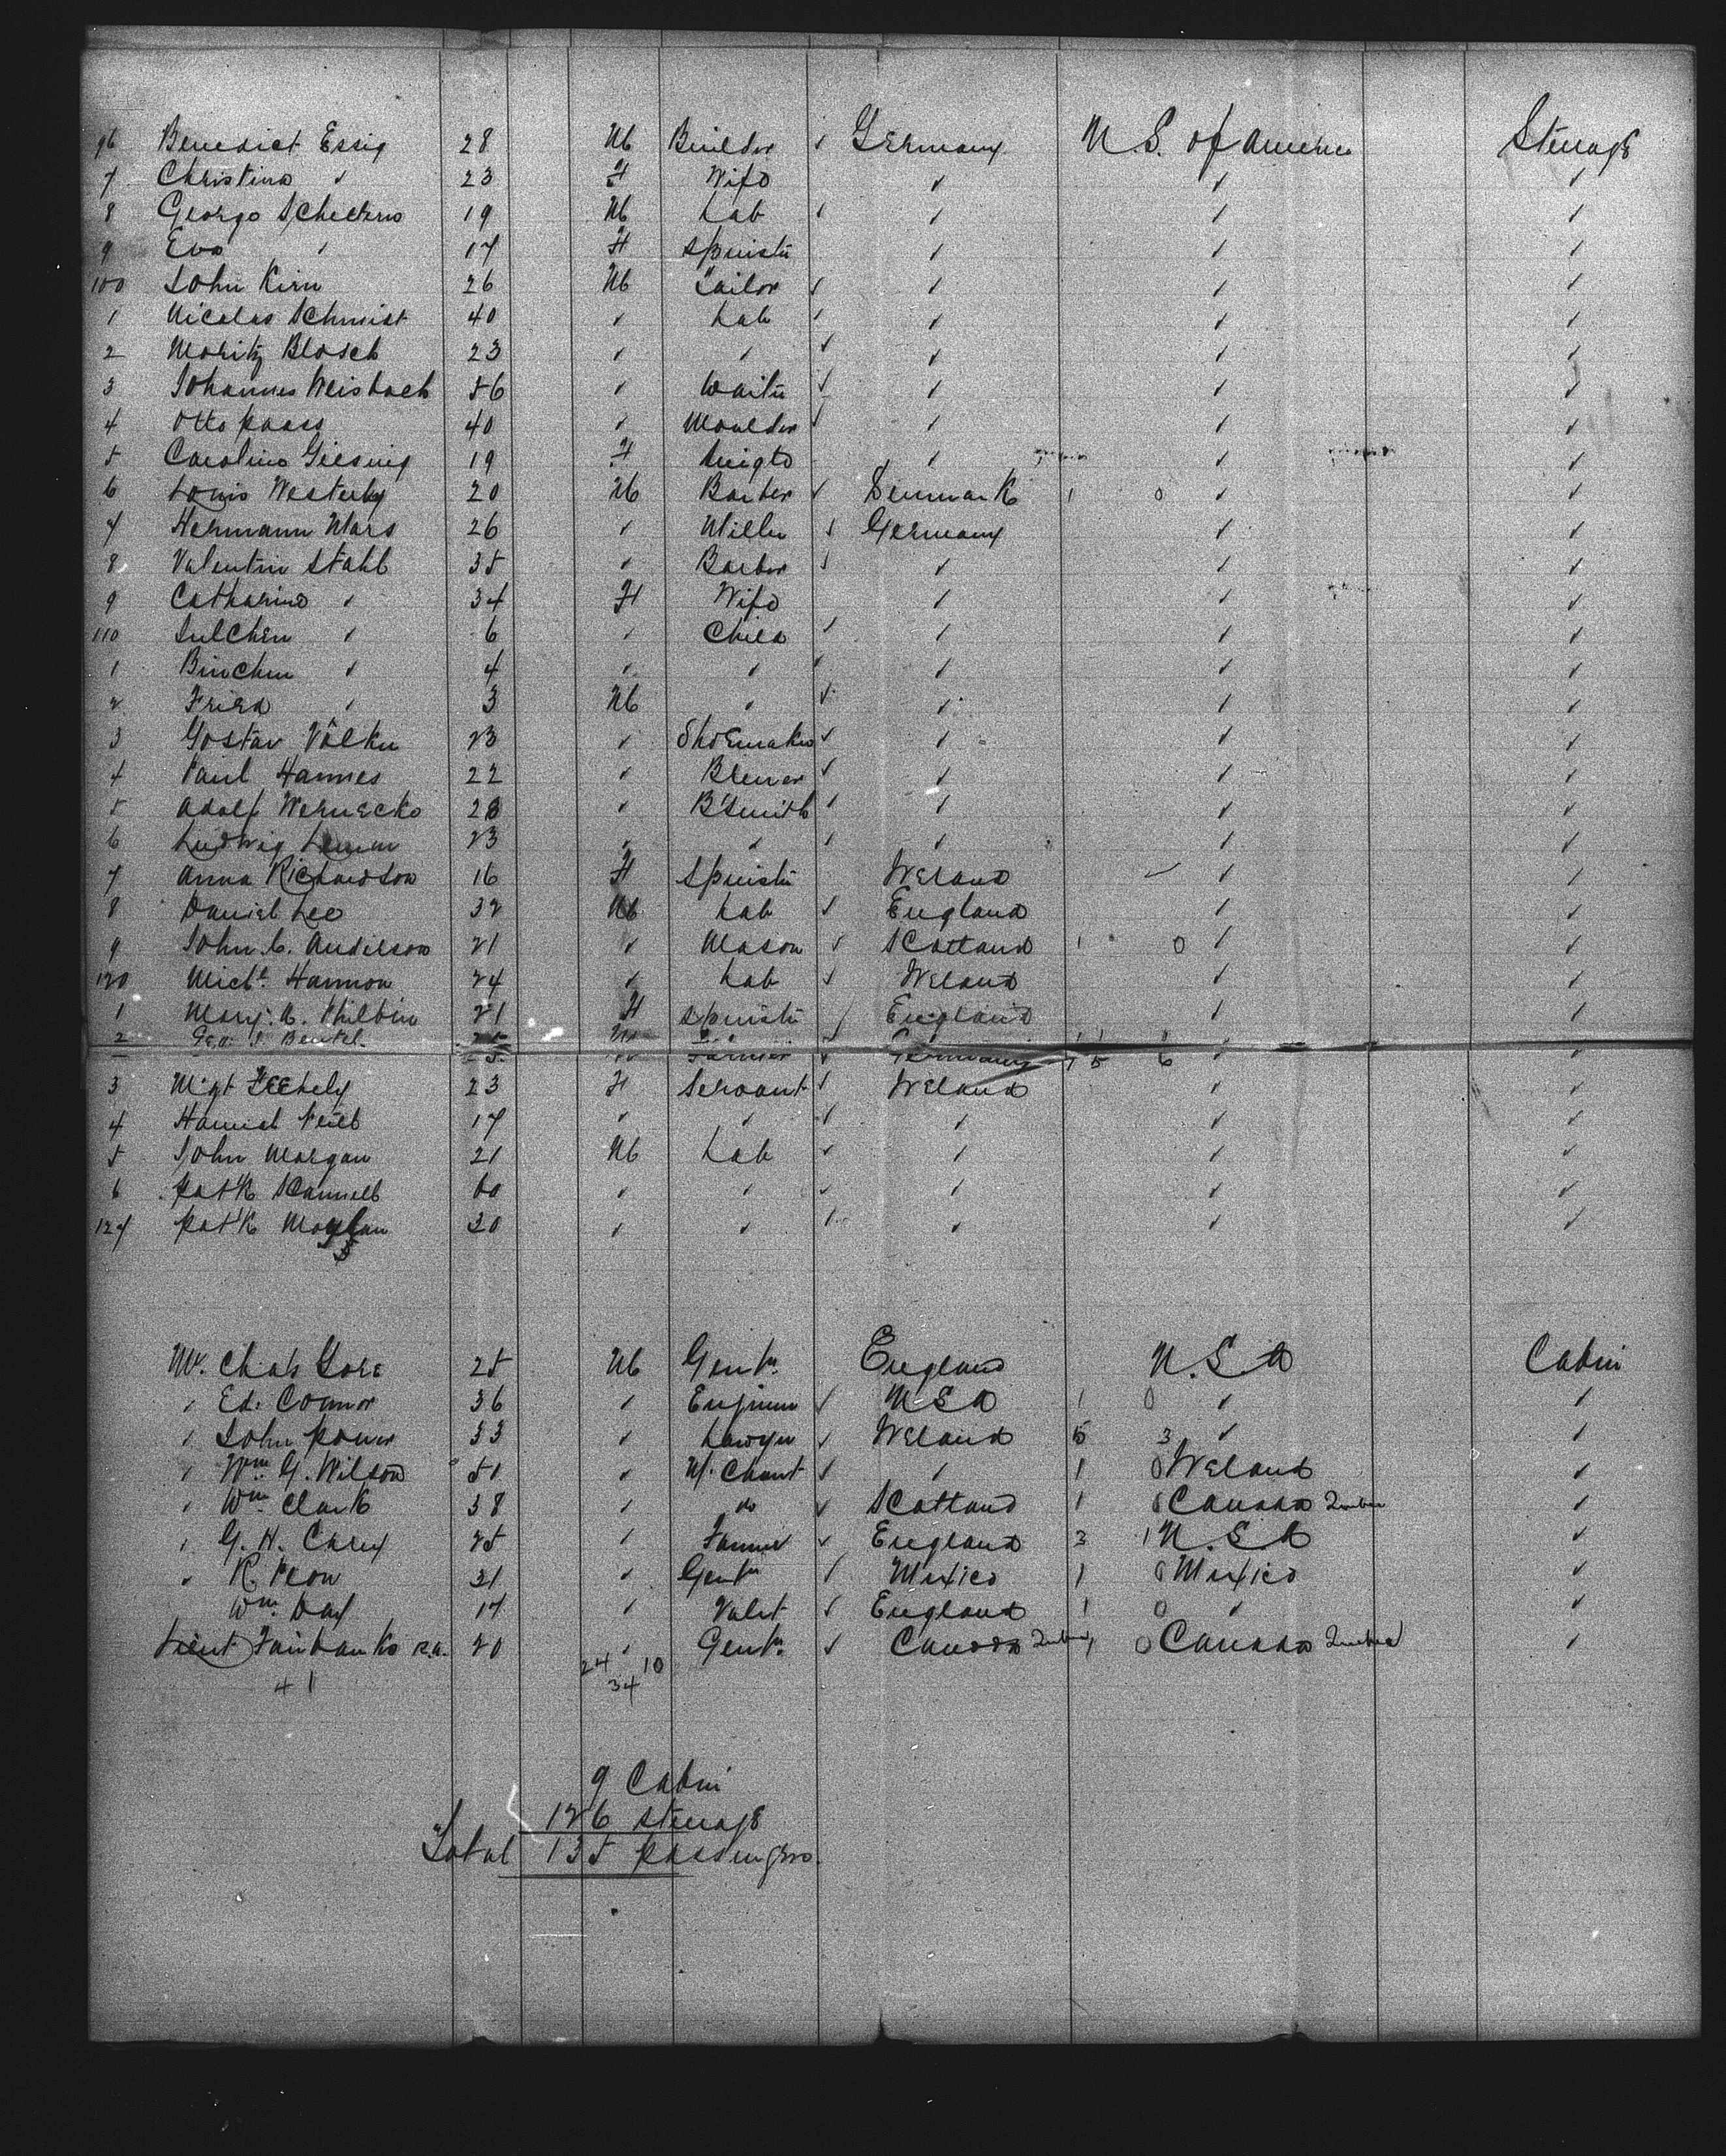 96 Benedict Essig 28 M Builder ✓ Germany U.S. of America Steerage
7 Christina " 23 F Wife " " "
8 George 19 M Lab ✓ " " "
9 Eva " 17 F Spinster " " "
100 John Kirn 26 M Tailor ✓ " " "
1 Nicolas Schmidt 40 " Lab ✓ " " "
2 Moritz Blosch 23 " " ✓ " " "
3 Johannes Weisbach 56 " Waiter ✓ " " "
4 Otto Paass 40 " Moulder ✓ " " "
5 Caroline Giesing 19 F " " "
6 Louis Westerby 20 M Barber ✓ Denmark 1 0 " "
7 Hermann Mars 26 " Miller ✓ Germany " "
8 Valentin Stahl 35 " Barber ✓ " " "
9 Catharine " 34 F Wife " " "
110 Julchen " 6 " Child ✓ " " "
1 Binchen " 4 " " ✓ " " "
2 Fried " 3 M " ✓ " " "
3 Gostav Völker 23 " Shoemaker ✓ " " "
4 Paul Hannes 22 " Brewer ✓ " " "
5 Adolf Wernecke 28 " B'Smith ✓ " " "
6 Ludwig 23 " " ✓ " " "
7 Anna Richardson 16 F Spinster Ireland " "
8 Daniel Lee 32 M Lab ✓ England " "
9 John C. Anderson 21 " Mason ✓ Scotland 1 0 " "
120 Michl. Hannon 24 " Lab ✓ Ireland " "
1 Mary. A. Philbin 21 F Spinster ✓ England " "
2 Geo. J. Beutel 25 M Farmer ✓ Germany 1 5 6 " "
3 Mgt Feehely 23 F Servant ✓ Ireland " "
4 Hannah Neill 17 " " ✓ " " "
5 John Morgan 21 M Lab ✓ " " "
6 Patk Scannell 60 " " ✓ " " "
127 Patk Moylan 30 " " ✓ " " "
Mr. Chas Gore 25 M Gentn. England U.S.A Cabin
" Ed: Connor 36 " Engineer ✓ USA 1 0 " "
" John Power 33 " Lawyer ✓ Ireland 5 3 " "
" Wm. G. Wilson 51 " M'Chant ✓ " 1 0 Ireland "
" Wm Clark 38 " do ✓ Scotland 1 0 Canada Quebec "
" G. H. Carey 25 " Farmer ✓ England 3 1 U.S.A "
" R. Peon 31 " Gentn ✓ Mexico 1 0 Mexico "
Wm. Day 17 " Valet ✓ England 1 0 " "
Lieut Fairbanks R.A. 20 " Gentn. ✓ Canada Quebec 1 0 Canada Quebec "
24 10
41 34
9 Cabin
126 Steerage
Total 135 Passengers.